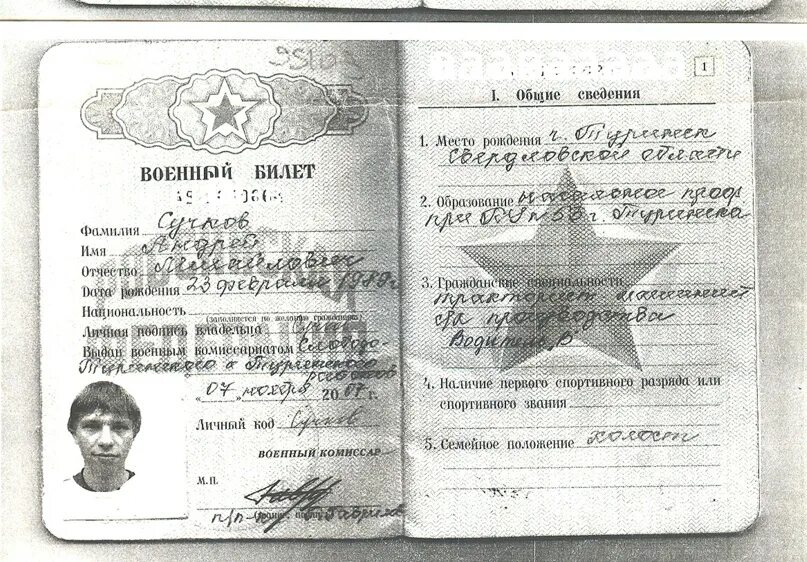 ВОЕННЫЙ БИЛЕТ
Фамилия Сучков
Имя Андрей
Отчество Михайлович
Дата рождения 23 февраля 1989г
Национальность
(заполняется по желанию гражданина)
Личная подпись владельца
Выдан военным комиссариатом Слободо-
Туринского и Туринского
районов
"07" ноября 2007 г.
Личный код
ВОЕННЫЙ КОМИССАР
М.П.
1
I. Общие сведения
1. Место рождения г. Туринск
Свердловской области
2. Образование начальное проф.
при г. Туринска
3. Гражданские специальности
тракторист машинист
с/х производства
Водитель
4. Наличие первого спортивного разряда или
спортивного звания
5. Семейное положение холост